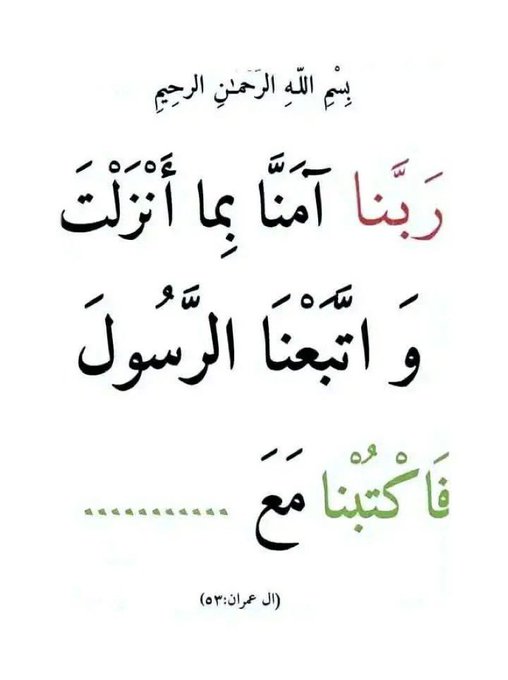 بِسْمِ اللّهِ الرَحمٰنِ الرحِیمِ
رَبَّنا آمَنَّا بِما أَنْزَلْتَ
وَ اتَّبَعْنَا الرَّسُولَ
فَاكْتُبْنا مَعَ ...........
(ال عمران:۵۳)